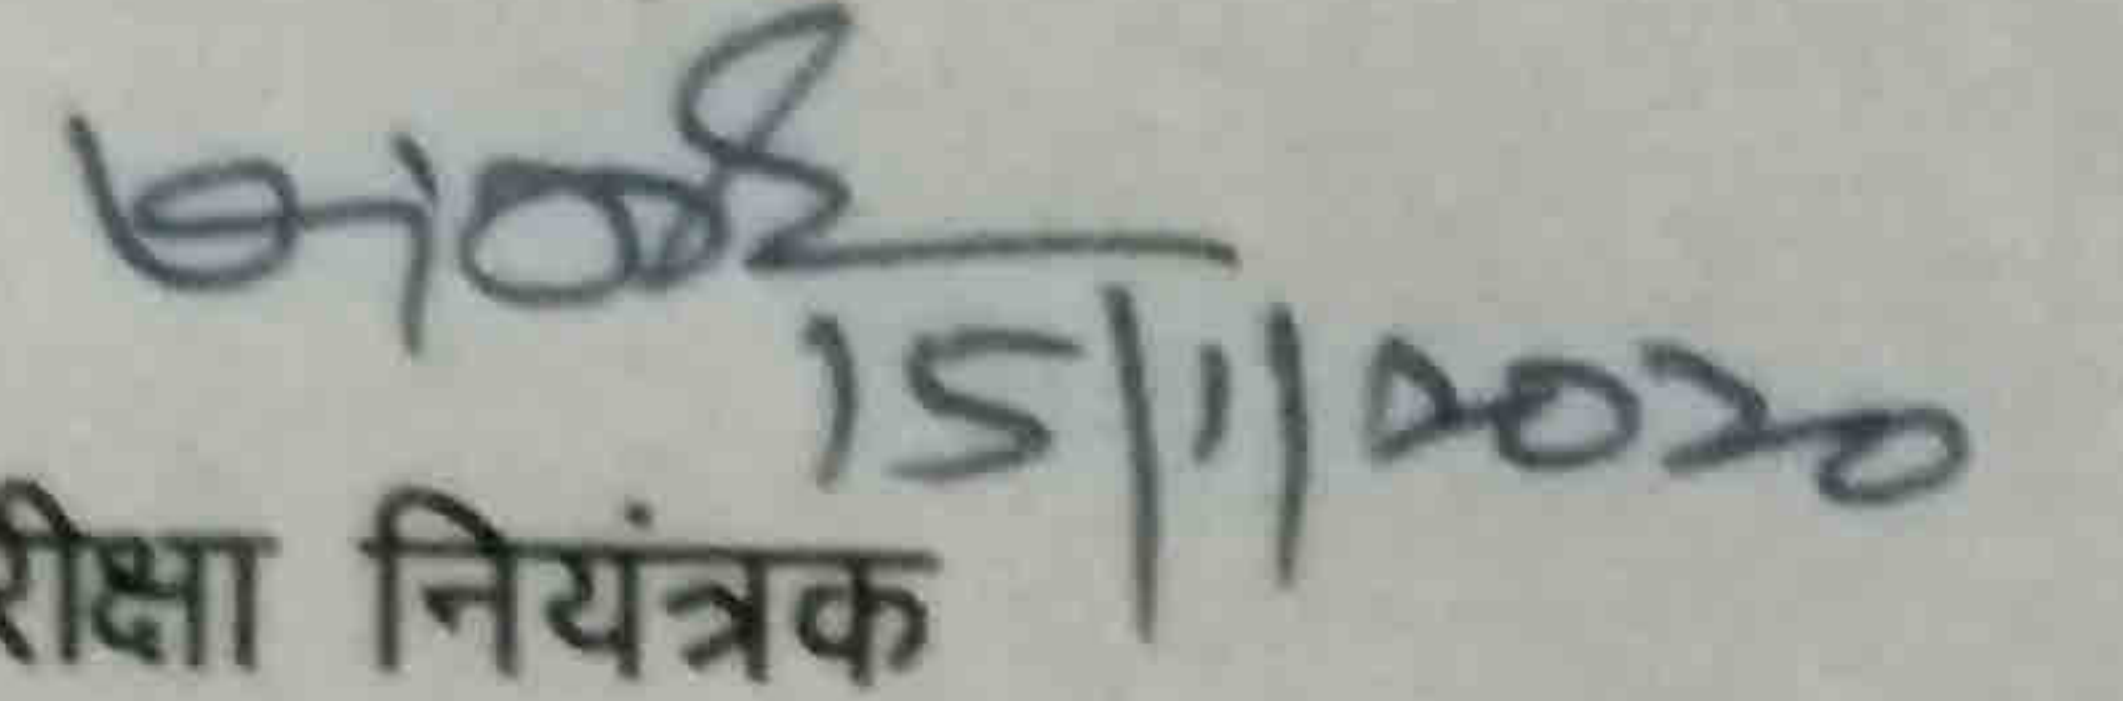 15/1/2020
रीक्षा नियंत्रक